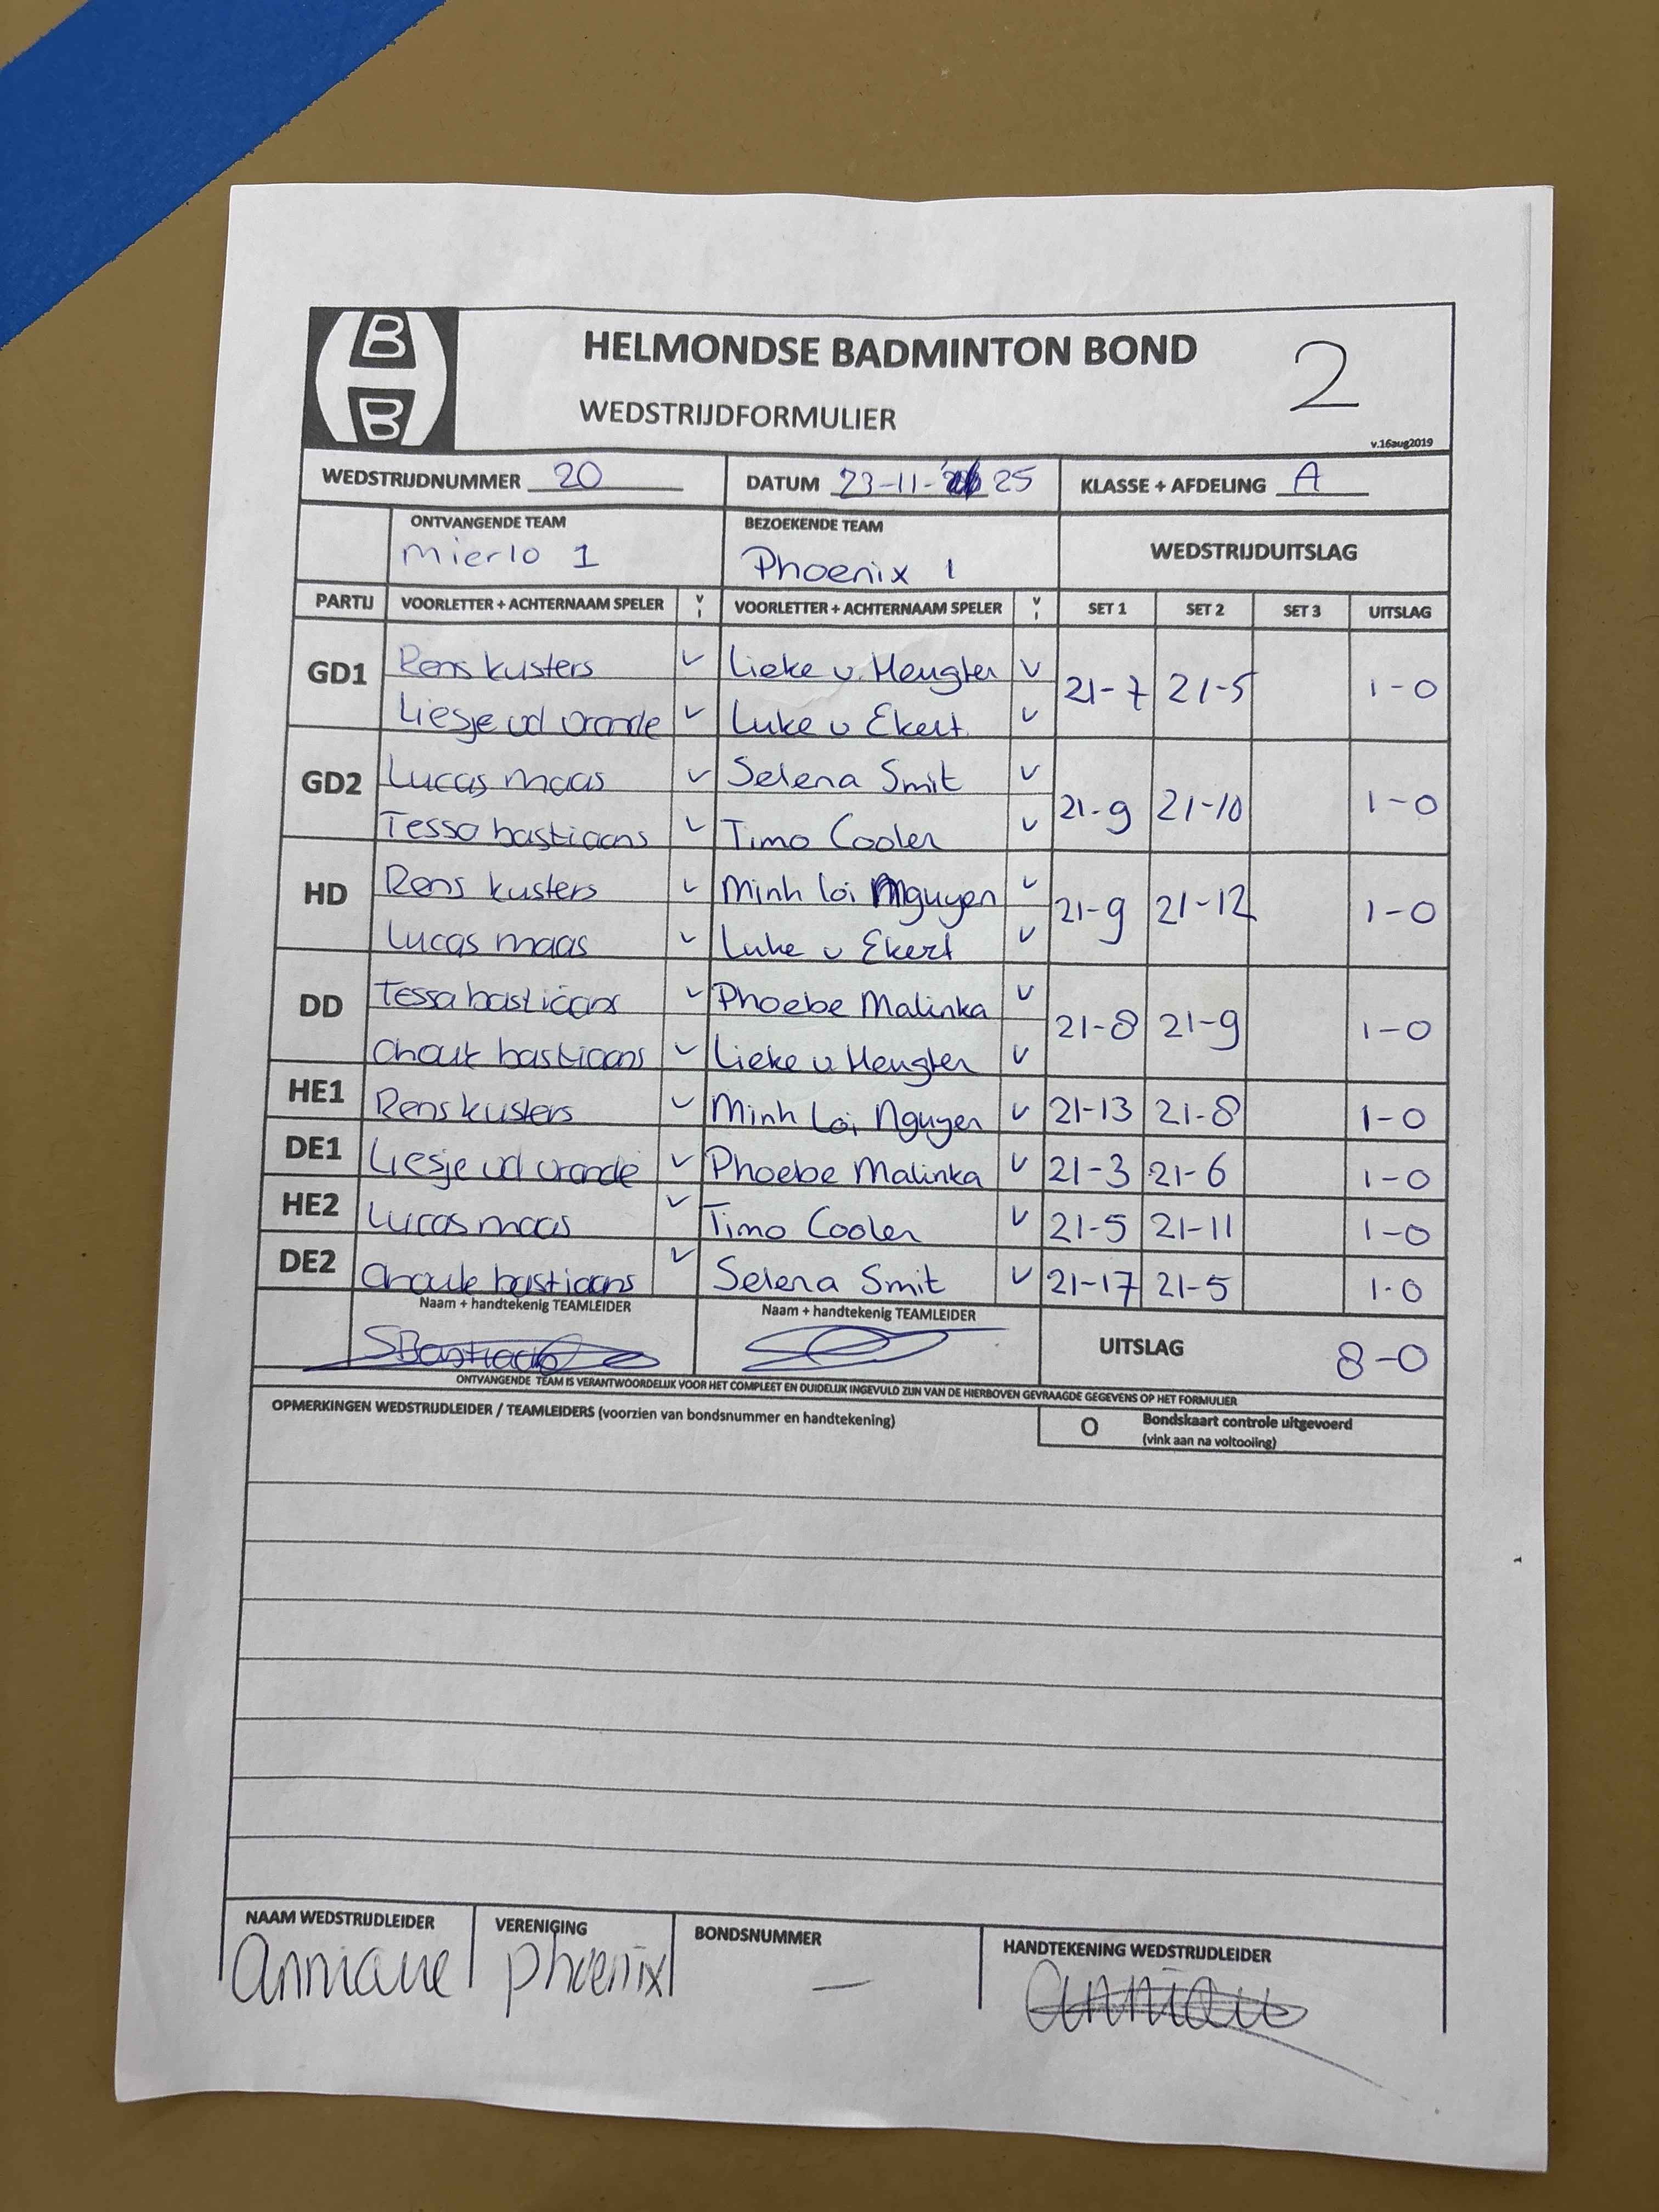 B
B
HELMONDSE BADMINTON BOND
2
WEDSTRIJDFORMULIER
v.16aug2019
WEDSTRIJDNUMMER 20 DATUM 23-11- 25 KLASSE + AFDELING A
ONTVANGENDE TEAM BEZOEKENDE TEAM WEDSTRIJDUITSLAG
Mierlo 1 Phoenix 1
PARTIJ VOORLETTER + ACHTERNAAM SPELER V I VOORLETTER + ACHTERNAAM SPELER V I SET 1 SET 2 SET 3 UITSLAG
GD1 Rens kusters v Lieke v. Heugten v 21-7 21-5 1-0
Liesje vd vrande v Luke v Ekert v
GD2 Lucas maas v Selena Smit v 21-9 21-10 1-0
Tessa bastiaans v Timo Coolen v
HD Rens kusters v Minh Loi Nguyen v 21-9 21-12 1-0
Lucas maas v Luke v Ekert v
DD Tessa bastiaans v Phoebe Malinka v 21-8 21-9 1-0
Anouk bastiaans v Lieke v Heugten v
HE1 Rens kusters v Minh Loi Nguyen v 21-13 21-8 1-0
DE1 Liesje vd vrande v Phoebe Malinka v 21-3 21-6 1-0
HE2 Lucas maas v Timo Coolen v 21-5 21-11 1-0
DE2 Anouk bastiaans v Selena Smit v 21-17 21-5 1-0
Naam + handtekenig TEAMLEIDER Naam + handtekenig TEAMLEIDER
UITSLAG 8-0
ONTVANGENDE TEAM IS VERANTWOORDELIJK VOOR HET COMPLEET EN DUIDELIJK INGEVULD ZIJN VAN DE HIERBOVEN GEVRAAGDE GEGEVENS OP HET FORMULIER
OPMERKINGEN WEDSTRIJDLEIDER / TEAMLEIDERS (voorzien van bondsnummer en handtekening)
O Bondskaart controle uitgevoerd
(vink aan na voltooiing)
NAAM WEDSTRIJDLEIDER VERENIGING BONDSNUMMER HANDTEKENING WEDSTRIJDLEIDER
Anniane phoenix —